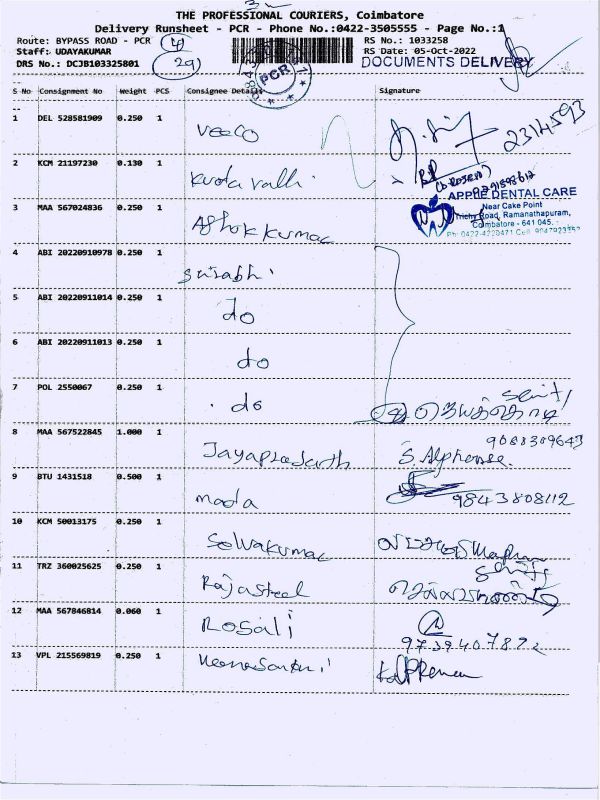 THE PROFESSIONAL COURIERS, Coimbatore
Delivery Runsheet - PCR - Phone No.:0422-3505555 - Page No.:1
Route: BYPASS ROAD - PCR
RS No.: 1033258
Staff: UDAYAKUMAR
RS Date: 05-Oct-2022
DRS No.: DCJB103325801
29
DOCUMENTS DELIVERY
PCR
S No Consignment No Weight PCS Consignee Details Signature
1 DEL 528581909 0.250 1 veeco
2314593
2 KCM 21197230 0.130 1
3 MAA 567024836 0.250 1 Ashok kumar
APPLE DENTAL CARE
Near Cake Point
Trichy Road, Ramanathapuram,
Coimbatore - 641 045.
Ph: 0422-4220471 Cell:
4 ABI 20220910978 0.250 1 surabhi
5 ABI 20220911014 0.250 1 do
6 ABI 20220911013 0.250 1 do
7 POL 2550067 0.250 1 do
8 MAA 567522845 1.000 1 Jayaprasanth S. Alphonse.
9 BTU 1431518 0.500 1 mada 9843808112
10 KCM 50013175 0.250 1 Selvakumar
11 TRZ 360025625 0.250 1 Rajasteel
12 MAA 567846814 0.060 1 Rosali
9739407872
13 VPL 215569819 0.250 1